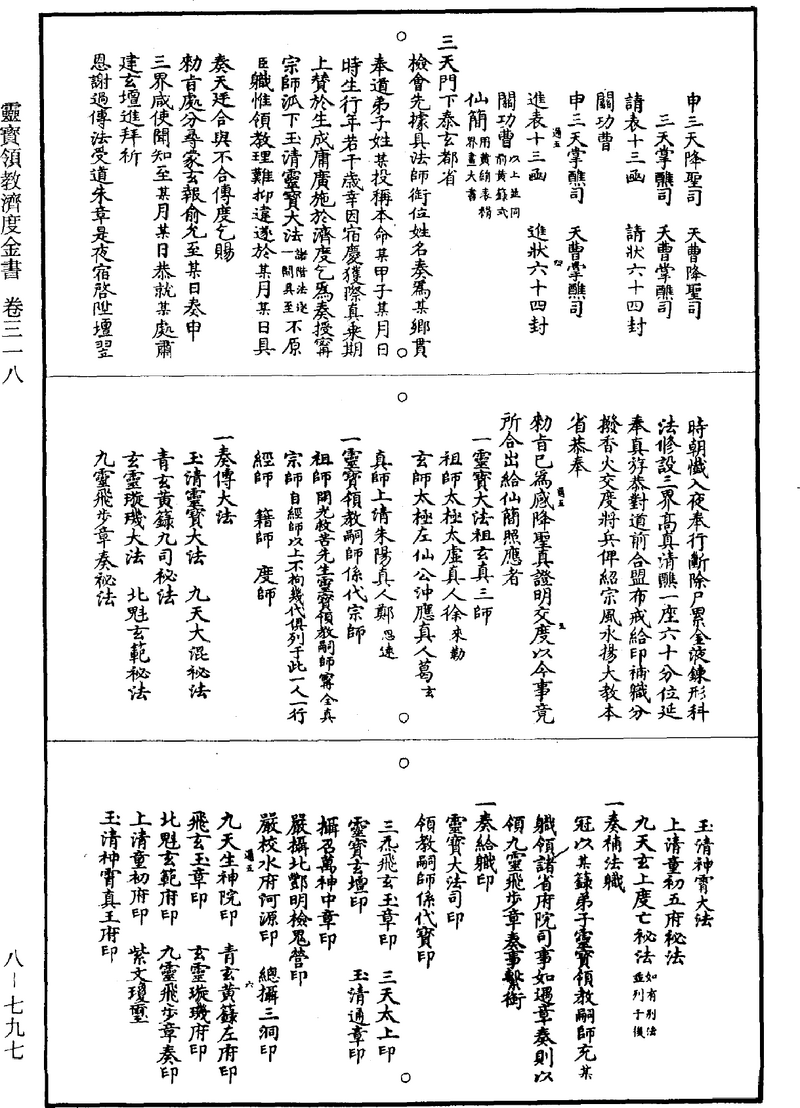 靈寶領教濟度金書 卷三一八
申三天降聖司 天曹降聖司
三天掌醮司 天曹掌醮司
請表十三函 請狀六十四封
關功曹
申三天掌醮司 天曹掌醮司
進表十三函 進狀六十四封
關功曹以上並同前黃籙式
仙簡用黃絹表褙界畫大書
三天門下泰玄都省
檢會先據具法師銜位姓名奏為某鄉貫
奉道弟子姓某投稱本命某甲子某月日
時生行年若干歲幸因宿慶獲際真乘期
上贊於生成庸廣施於濟度乞為奏授甯
宗師派下玉清靈寶大法諸階法逐一開具至不原
臣職惟領教理難抑違遂於某月某日具
奏天廷合與不合傳度乞賜
勑旨處分尋蒙玄報俞允至某日奏申
三界咸使聞知至某月某日恭就某處肅
建玄壇進拜祈
恩謝過傳法受道朱章是夜宿啓陞壇翌
時朝懺入夜奉行斷除尸累金液鍊形科
法修設三界高真清醮一座六十分位延
奉真斿恭對道前合盟布戒給印補職分
撥香火交度將兵俾紹宗風永揚大教本
省恭奉
勑旨已為感降聖真證明交度以今事竟
所合出給仙簡照應者
一靈寶大法祖玄真三師
祖師太極太虛真人徐來勒
玄師太極左仙公沖應真人葛玄
真師上清朱陽真人鄭思遠
一靈寶領教嗣師係代宗師
祖師開光救苦先生靈寶領教嗣師甯全真
宗師自經師以上不拘幾代俱列于此一人一行
經師 籍師 度師
一奏傳大法
玉清靈寶大法 九天大混祕法
青玄黃籙九司祕法
玄靈璇璣大法 北魁玄範祕法
九靈飛步章奏祕法
玉清神霄大法
上清童初五府祕法
九天玄上度亡祕法如有別法並列于後
一奏補法職
冠以某籙弟子靈寶領教嗣師充某
職領諸省府院司事如遇章奏則以
領九靈飛步章奏事繫銜
一奏給職印
靈寶大法司印
領教嗣師係代寶印
三炁飛玄玉章印 三天太上印
靈寶玄壇印 玉清通章印
攝召萬神中章印
嚴攝北酆明檢鬼營印
嚴校水府河源印 總攝三洞印
九天生神院印 青玄黃籙左府印
飛玄玉章印 玄靈璇璣府印
北魁玄範府印 九靈飛步章奏印
上清童初府印 紫文瓊璽
玉清神霄真王府印
八－七九七